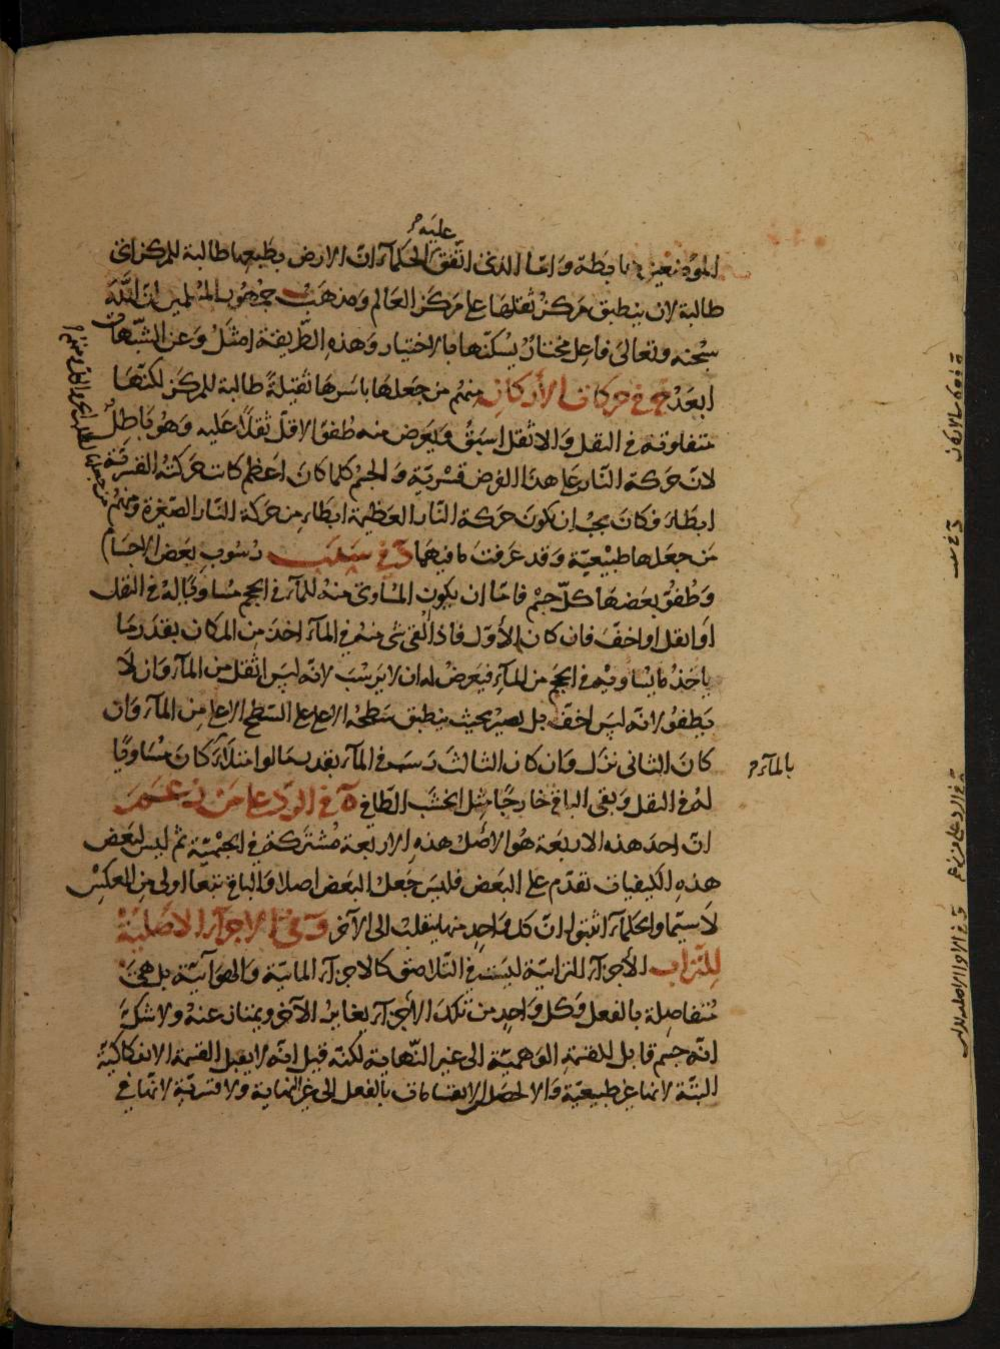 عليه
الموضعين هابطة واما الذي اتفق الحكماء ان الارض بطبعها طالبة للمركز اي
طالبة لان ينطبق مركز ثقلها على مركز العالم ومذهب جمهور المسلمين ان الله
سبحنه وتعالى فاعل مختار يسكنها بالاختيار وهذه الطريقة امثل وعن الشبهات
ابعد ج في حركات الأركان منهم من جعلها باسرها ثقيلة طالبة للمركز لكنها
متفاوتة في الثقل والاثقل اسبق ويعرض منه طفو الاقل ثقلا عليه وهو باطل
لان حركة النار على هذا الفرض قسرية والجسم كلما كان اعظم كانت حركته القسرية
ابطاء فكان يجب ان تكون حركة النار العظيمة ابطاء من حركة النار الصغيرة ومنهم
من جعلها طبيعية وقد عرفت ما فيهما د في سبب رسوب بعض الاجسا
وطفو بعضها كل جسم فاما ان يكون المساوي منه للماء في الحجم مساويا له في الثقل
او اثقل او اخف فان كان الأول فاذا القي شيء منه في الماء اخذ من المكان بقدر ما
ياخذ ما يساويه في الحجم من الماء فيعرض له ان لا يرسب لانه ليس اثقل من الماء وان لا
يطفو لانه ليس اخف بل يصير بحيث ينطبق سطحه الاعلى على السطح الاعلى من الماء وان
كان الثاني نزل وان كان الثالث رسب في الماء بقدر ما لو امتلاء كان مساويا
بالماء
له في الثقل ويبقى الباقي خارجا مثل الخشب الطافي ه في الرد على من زعم
ان احد هذه الاربعة هو الاصل هذه الاربعة مشتركة في الجسمية ثم ليس لبعض
هذه الكيفيات تقدم على البعض فليس جعل البعض اصلا والباقي تبعا اولى من العكس
لا سيما والحكماء اثبتوا ان كل واحد منها ينقلب الى الآخر و في الاجزاء الاصلية
للتراب الأجزاء الترابية ليست في التلاصق كالاجزاء المائية والهوائية بل هي
متفاصلة بالفعل وكل واحد من تلك الاجزاء يغاير الآخر ويمتاز عنه ولا شك
انه جسم قابل للقسمة الوهمية الى غير النهاية لكنه قيل انه لا يقبل القسمة الانفكاكية
البتة لانها غير طبيعية والا لحصل الانقسامات بالفعل الى غير النهاية ولا قسرية لانها في